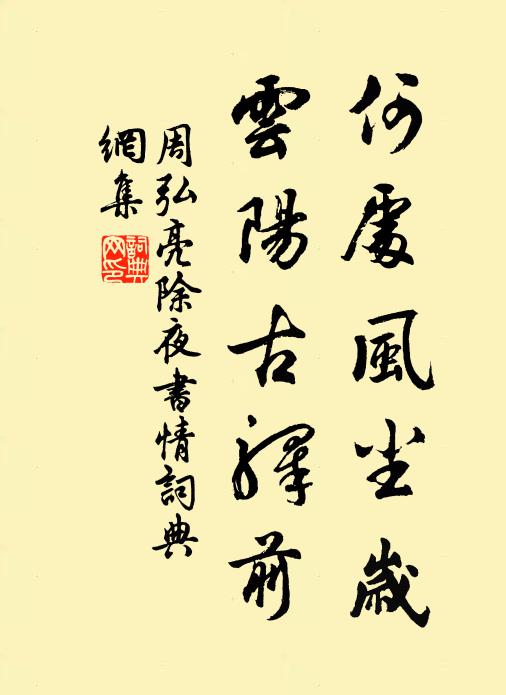 何處風塵歲
雲陽古驛前
周弘亮除夜書情詞典
網集
詞典
网印